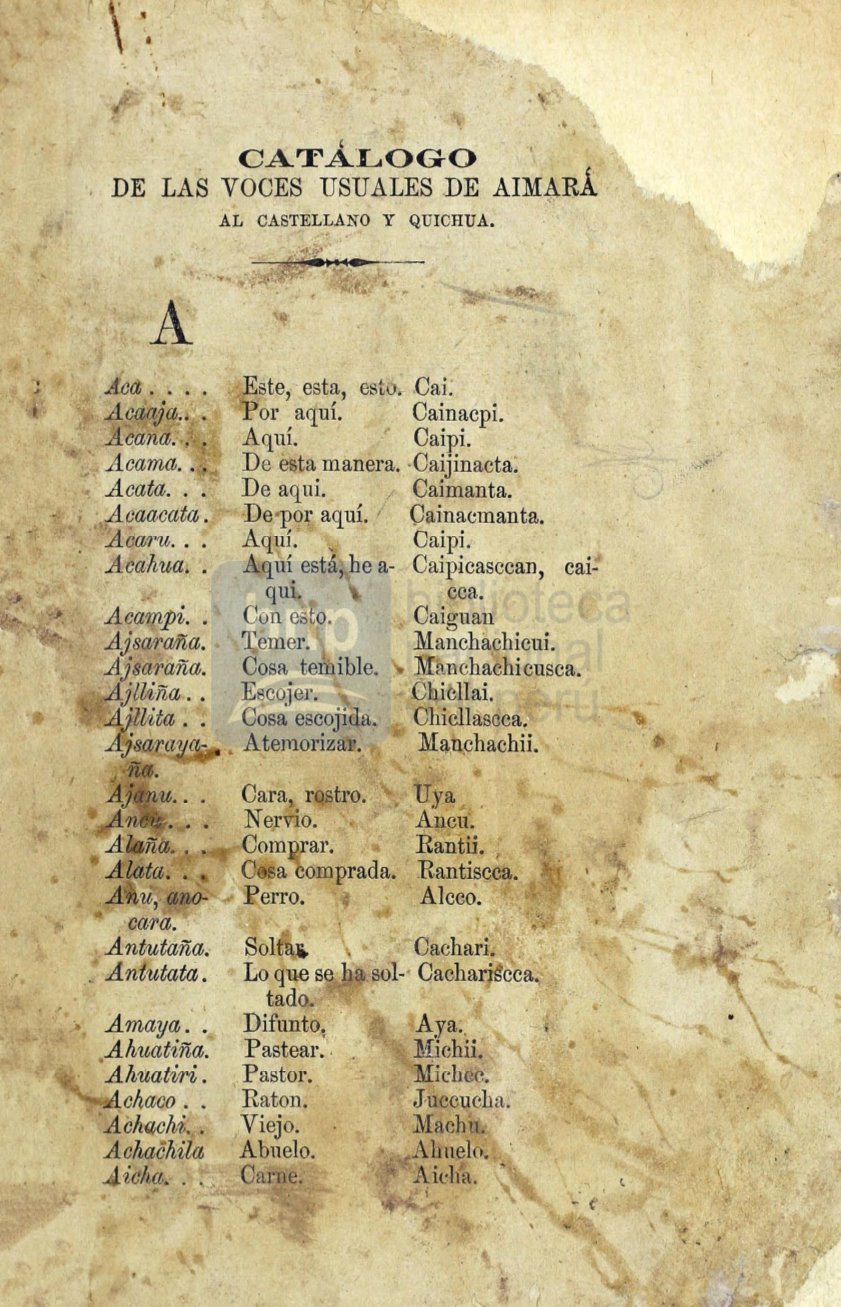 CATÁLOGO
DE LAS VOCES USUALES DE AIMARÁ
AL CASTELLANO Y QUICHUA.
A
Aca . . . . Este, esta, esto. Cai.
Acaaja. . . Por aquí. Cainacpi.
Acana. . . Aquí. Caipi.
Acama. . . De esta manera. Caijinacta.
Acata. . . De aqui. Caimanta.
Acaacata. De por aquí. Cainacmanta.
Acaru. . . Aquí. Caipi.
Acahua. . Aquí está, he a- Caipicasccan, cai-
qui. cca.
Acampi. . Con esto. Caiguan
Ajsaraña. Temer. Manchachicui.
Ajsaraña. Cosa temible. Manchachicusca.
Ajlliña . . Escojer. Chicllai.
Ajllita . . Cosa escojida. Chicllascca.
Ajsaraya- . Atemorizar. Manchachii.
ña.
Ajanu. . . Cara, rostro. Uya
Ancu . . . Nervio. Ancu.
Alaña. . . Comprar. Rantii.
Alata. . . Cosa comprada. Rantiscca.
Anu, ano- Perro. Alcco.
cara.
Antutaña. Soltar. Cachari.
Antutata. Lo que se ha sol- Cachariscca.
tado.
Amaya. . Difunto. Aya.
Ahuatiña. Pastear. Michii.
Ahuatiri. Pastor. Michec.
Achaco . . Raton. Juccucha.
Achachi. . Viejo. Machu.
Achachila Abuelo. Ahuelo.
Aicha. . . Carne. Aicha.
biblioteca